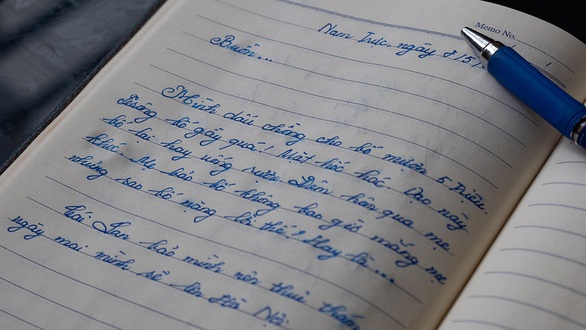 Memo No.
Nam Trực, ngày 8/5/
Buồn...
Mình dấu chồng cho bố mượn 5 triệu.
Trông bố gầy quá! Mặt hốc hác. Dạo này
bố lại hay uống rượu. Đêm hôm qua mẹ
khóc. Mẹ bảo bố không bao giờ mắng mẹ
nhưng sao bố nặng thế? Hay là...
Cái bảo mình nên
ngày mai mình sẽ lên Hà Nội.